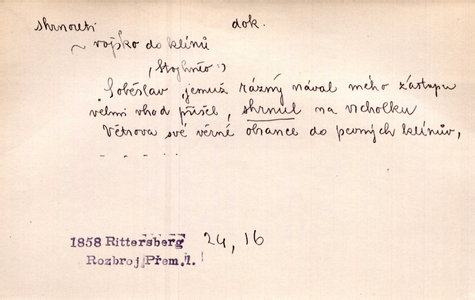 shrnouti dok.
~ vojsko do klínů
Soběslav, jemuž rázný nával mého zástupu
velmi vhod přišel, shrnul na vrcholku
Větrova své věrné obrance do pevných klínův,
- - - - -
1858 Rittersberg 24, 16
Rozbroj Přem. 1.